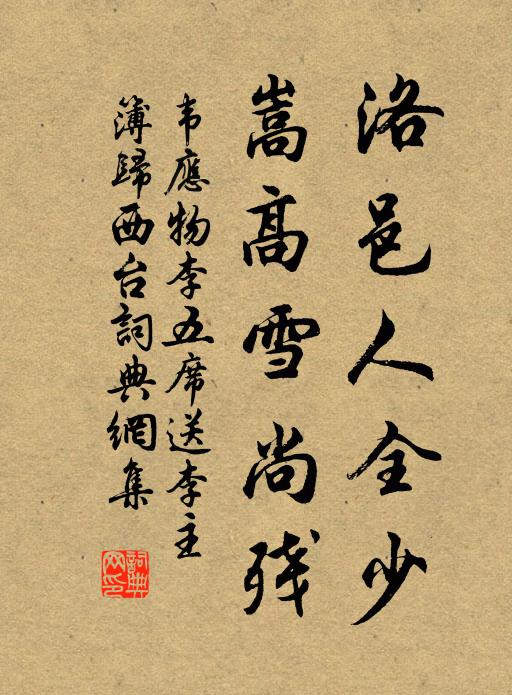 洛邑人全少
嵩高雪尚残
韦應物李五席送李主
簿歸西台詞典網集
詞典网印